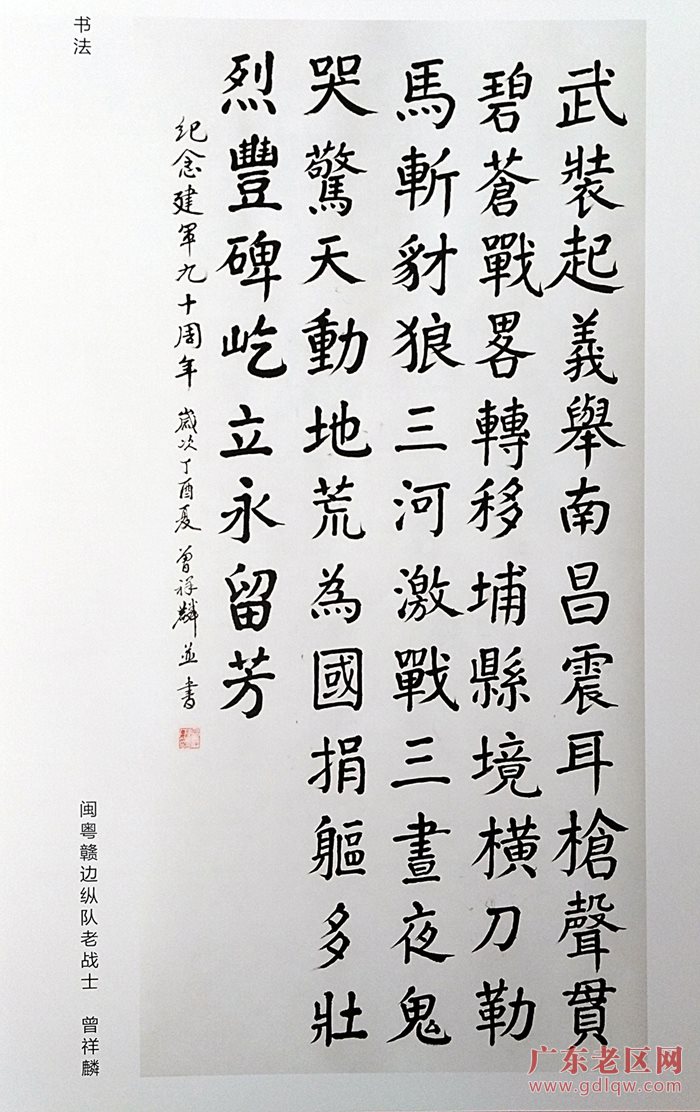 书法
武裝起義舉南昌震耳槍聲貫
碧蒼戰畧轉移埔縣境橫刀勒
馬斬豺狼三河激戰三晝夜鬼
哭驚天動地荒為國捐軀多壯
烈豐碑屹立永留芳
纪念建军九十周年 歲次丁酉夏 曾祥麟並書
闽粤赣边纵队老战士 曾祥麟
广东老区网
www.gdlqw.com